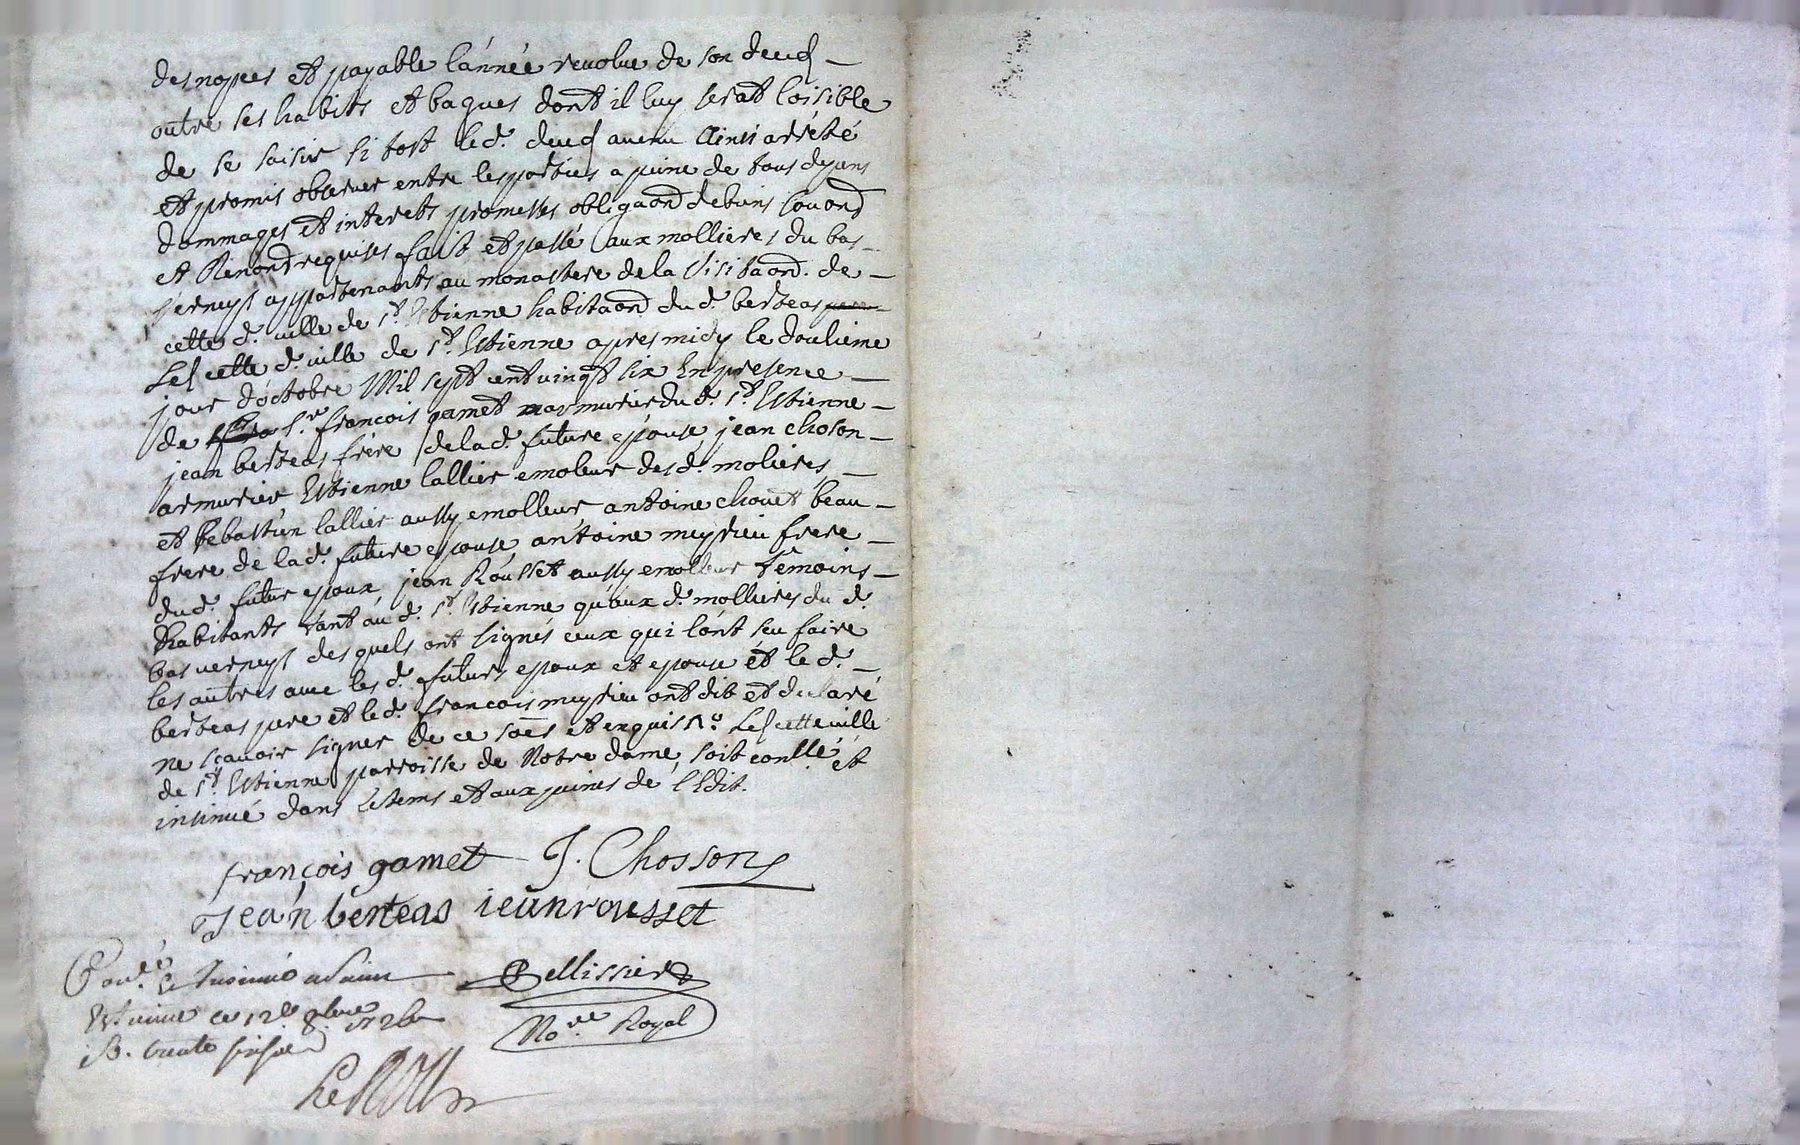 des nopces et payable l'année revolue de son deced
outre ses habits et bagues dont il luy serat loisible
de se saisir si tost led. deced avenu Ainsi arrêté
et promis observer entre les parties a peine de tous depans
dommages et interets promesses obligaond debiens souond
et Renond requises fait et passé aux mollieres du bas
verneyl appartenants au monastere de la Visitaond. de
cette d. ville de st. Estienne habitaond dud. berteas
Les cette d. ville de st. Estienne apres midy le douzieme
jour d'octobre Mil sept cent vingt six En presence
de sr. francois gamet armurier dud. st. Estienne
jean berteas frere de lad. future epouse jean choson
armurier Estienne lallier emoleur desd. molieres
et sebastien lallier aussy emolleur antoine chouet beau
frere de lad. future epouse antoine meyrieu frere
dud. futur epoux, jean Rousset aussy emolleur têmoins
habitants tant au d. st. Estienne qu'aux d. mollieres du d.
bas verneyl des quels ont signés ceux qui l'ont sçu faire
les autres avec les d. futurs epoux et epouse et le d.
berteas pere et led. francois meyrieu ont dit et declaré
ne sçavoir signer de ce soes et enquis no. Les cette ville
de st. Estienne parroisse de Notre dame, soit conllé et
insinué dans le tems et aux peines de l'Edit.
françois gamet J. Chosson
Jean berteas ieanrousset
le Insinué a Saint Pellissier
Estienne ce 12e 8bre 1726 Nore Royal